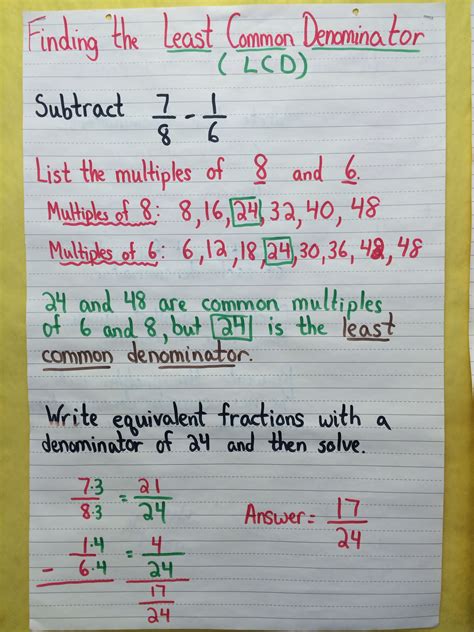 Finding the Least Common Denominator
(LCD)
Subtract 7/8 - 1/6
List the multiples of 8 and 6.
Multiples of 8: 8, 16, 24, 32, 40, 48
Multiples of 6: 6, 12, 18, 24, 30, 36, 42, 48
24 and 48 are common multiples
of 6 and 8, but 24 is the least
common denominator.
Write equivalent fractions with a
denominator of 24 and then solve.
7·3/8·3 = 21/24
Answer = 17/24
- 1·4/6·4 = 4/24
17/24